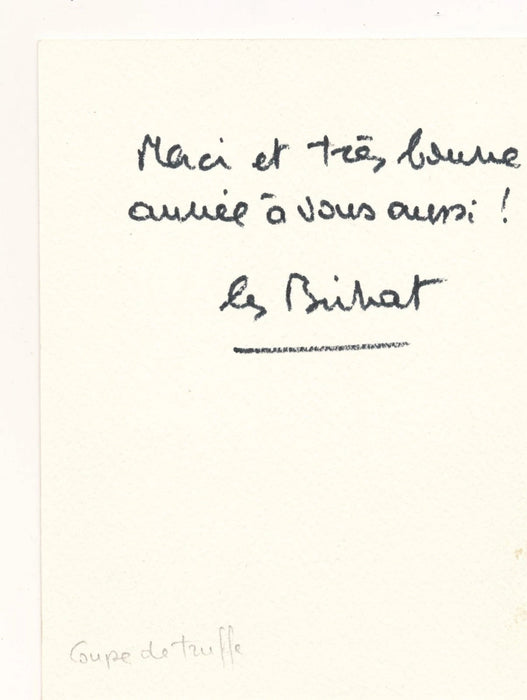 Merci et très bonne
année à vous aussi !
les Bruhat
Coupe de truffe